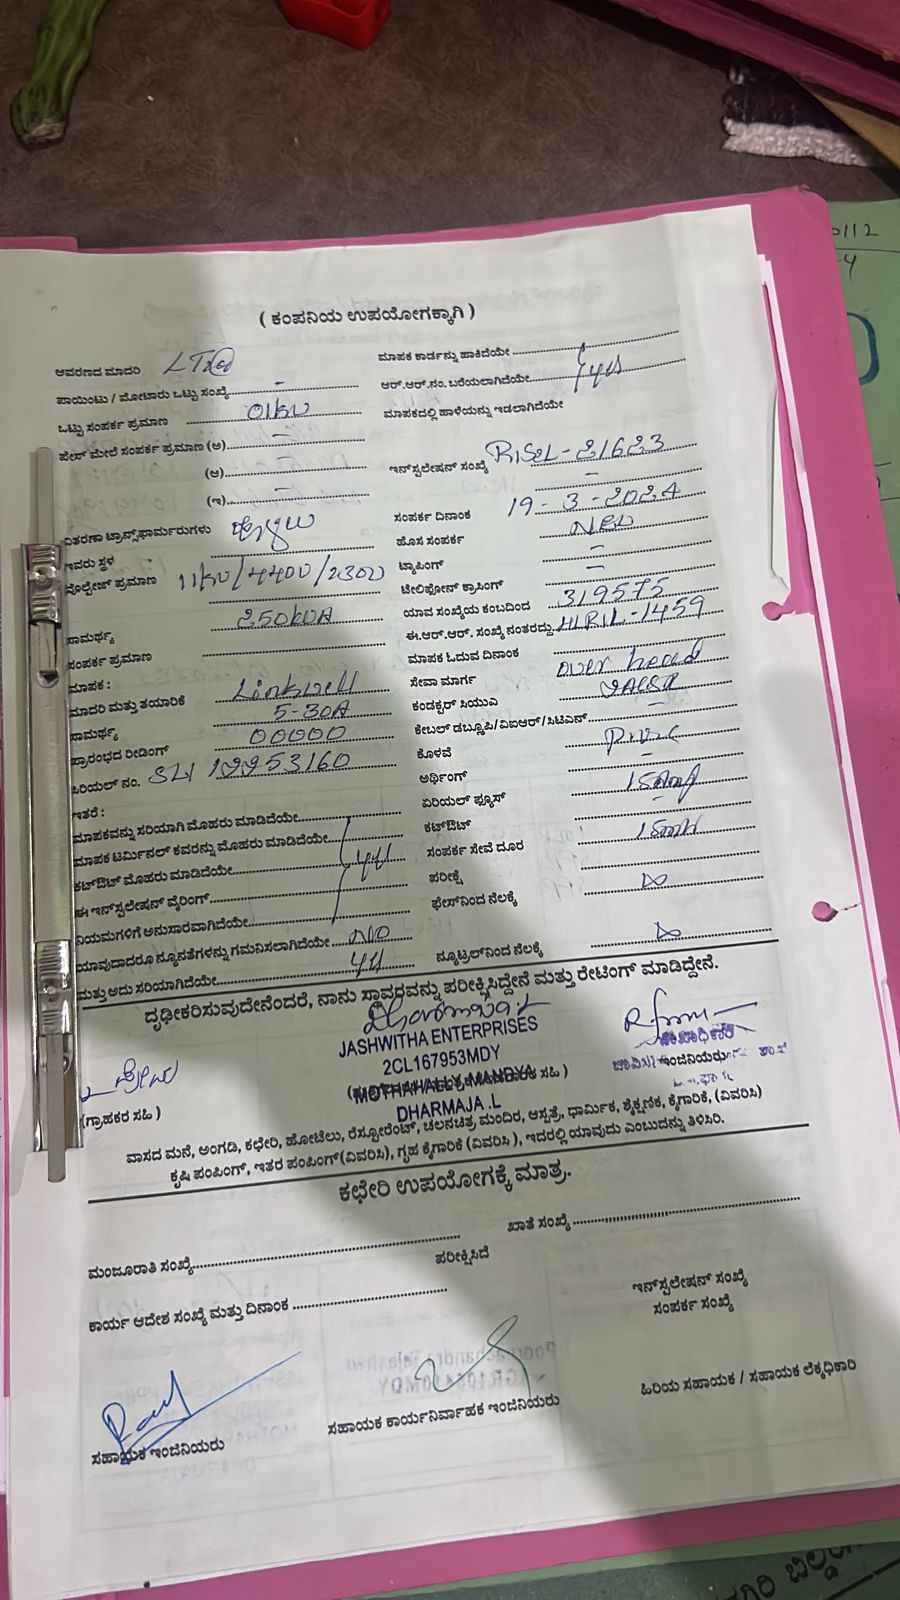 ( ಕಂಪನಿಯ ಉಪಯೋಗಕ್ಕಾಗಿ )
ಆವರಣದ ಮಾದರಿ
ಪಾಯಿಂಟು / ಮೋಟಾರು ಒಟ್ಟು ಸಂಖ್ಯೆ -
ಒಟ್ಟು ಸಂಪರ್ಕ ಪ್ರಮಾಣ 01kw
ಫೇಸ್ ಮೇಲೆ ಸಂಪರ್ಕ ಪ್ರಮಾಣ (ಅ) -
(ಆ) -
(ಇ) -
ವಿತರಣಾ ಟ್ರಾನ್ಸ್‌ಫಾರ್ಮರುಗಳು
ಇವರು ಸ್ಥಳ
ವೋಲ್ಟೇಜ್ ಪ್ರಮಾಣ 11kv/4400/230v
ಸಾಮರ್ಥ್ಯ 250kVA
ಸಂಪರ್ಕ ಪ್ರಮಾಣ
ಮಾಪಕ :
ಮಾದರಿ ಮತ್ತು ತಯಾರಿಕೆ Linkwell
ಸಾಮರ್ಥ್ಯ 5-30A
ಪ್ರಾರಂಭದ ರೀಡಿಂಗ್ 00000
ಸಿರಿಯಲ್ ನಂ.
ಇತರೆ :
ಮಾಪಕವನ್ನು ಸರಿಯಾಗಿ ಮೊಹರು ಮಾಡಿದೆಯೇ
ಮಾಪಕ ಟರ್ಮಿನಲ್ ಕವರನ್ನು ಮೊಹರು ಮಾಡಿದೆಯೇ
ಕಟ್‌ಔಟ್ ಮೊಹರು ಮಾಡಿದೆಯೇ yes
ಈ ಇನ್‌ಸ್ಟಲೇಷನ್ ವೈರಿಂಗ್
ನಿಯಮಗಳಿಗೆ ಅನುಸಾರವಾಗಿದೆಯೇ
ಯಾವುದಾದರೂ ನ್ಯೂನತೆಗಳನ್ನು ಗಮನಿಸಲಾಗಿದೆಯೇ NO
ಮತ್ತು ಅದು ಸರಿಯಾಗಿದೆಯೇ yes
ಮಾಪಕ ಕಾರ್ಡನ್ನು ಹಾಕಿದೆಯೇ
ಆರ್.ಆರ್.ನಂ. ಬರೆಯಲಾಗಿದೆಯೇ yes
ಮಾಪಕದಲ್ಲಿ ಹಾಳೆಯನ್ನು ಇಡಲಾಗಿದೆಯೇ
ಇನ್‌ಸ್ಟಲೇಷನ್ ಸಂಖ್ಯೆ
-
ಸಂಪರ್ಕ ದಿನಾಂಕ 19-3-2024
ಹೊಸ ಸಂಪರ್ಕ New
ಟ್ಯಾಪಿಂಗ್ -
ಟೆಲಿಫೋನ್ ಕ್ರಾಸಿಂಗ್ -
ಯಾವ ಸಂಖ್ಯೆಯ ಕಂಬದಿಂದ 319575
ಈ.ಆರ್.ಆರ್. ಸಂಖ್ಯೆ ನಂತರದ್ದು HLRIL-1459
ಮಾಪಕ ಓದುವ ದಿನಾಂಕ
ಸೇವಾ ಮಾರ್ಗ over head
ಕಂಡಕ್ಟರ್ ಸಿಯುವಿ
ಕೇಬಲ್ ಡಬ್ಲ್ಯೂಪಿ/ವಿಐಆರ್/ಸಿಟಿಎನ್ -
ಕೊಳವೆ
ಅರ್ಥಿಂಗ್ -
ಏರಿಯಲ್ ಫ್ಯೂಸ್ 15Amp
ಕಟ್‌ಔಟ್ -
ಸಂಪರ್ಕ ಸೇವೆ ದೂರ
ಪರೀಕ್ಷೆ
ಫೇಸ್‌ನಿಂದ ನೆಲಕ್ಕೆ
ನ್ಯೂಟ್ರಲ್‌ನಿಂದ ನೆಲಕ್ಕೆ
ದೃಢೀಕರಿಸುವುದೇನೆಂದರೆ, ನಾನು ಸ್ಥಾವರವನ್ನು ಪರೀಕ್ಷಿಸಿದ್ದೇನೆ ಮತ್ತು ರೇಟಿಂಗ್ ಮಾಡಿದ್ದೇನೆ.
JASHWITHA ENTERPRISES
2CL167953MDY
MOTHAHALLY, MANDYA
DHARMAJA .L
(ಗ್ರಾಹಕರ ಸಹಿ )
ಇಂಜಿನಿಯರು
ವಾಸದ ಮನೆ, ಅಂಗಡಿ, ಕಛೇರಿ, ಹೋಟೆಲು, ರೆಸ್ಟೋರೆಂಟ್, ಚಲನಚಿತ್ರ ಮಂದಿರ, ಆಸ್ಪತ್ರೆ, ಧಾರ್ಮಿಕ, ಶೈಕ್ಷಣಿಕ, ಕೈಗಾರಿಕೆ, (ವಿವರಿಸಿ)
ಕೃಷಿ ಪಂಪಿಂಗ್, ಇತರ ಪಂಪಿಂಗ್(ವಿವರಿಸಿ), ಗೃಹ ಕೈಗಾರಿಕೆ (ವಿವರಿಸಿ ), ಇದರಲ್ಲಿ ಯಾವುದು ಎಂಬುದನ್ನು ತಿಳಿಸಿರಿ.
ಕಛೇರಿ ಉಪಯೋಗಕ್ಕೆ ಮಾತ್ರ.
ಮಂಜೂರಾತಿ ಸಂಖ್ಯೆ
ಖಾತೆ ಸಂಖ್ಯೆ
ಪರೀಕ್ಷಿಸಿದೆ
ಕಾರ್ಯ ಆದೇಶ ಸಂಖ್ಯೆ ಮತ್ತು ದಿನಾಂಕ
ಇನ್‌ಸ್ಟಲೇಷನ್ ಸಂಖ್ಯೆ
ಸಂಪರ್ಕ ಸಂಖ್ಯೆ
ಸಹಾಯಕ ಇಂಜಿನಿಯರು
ಸಹಾಯಕ ಕಾರ್ಯನಿರ್ವಾಹಕ ಇಂಜಿನಿಯರು
ಹಿರಿಯ ಸಹಾಯಕ / ಸಹಾಯಕ ಲೆಕ್ಕಾಧಿಕಾರಿ